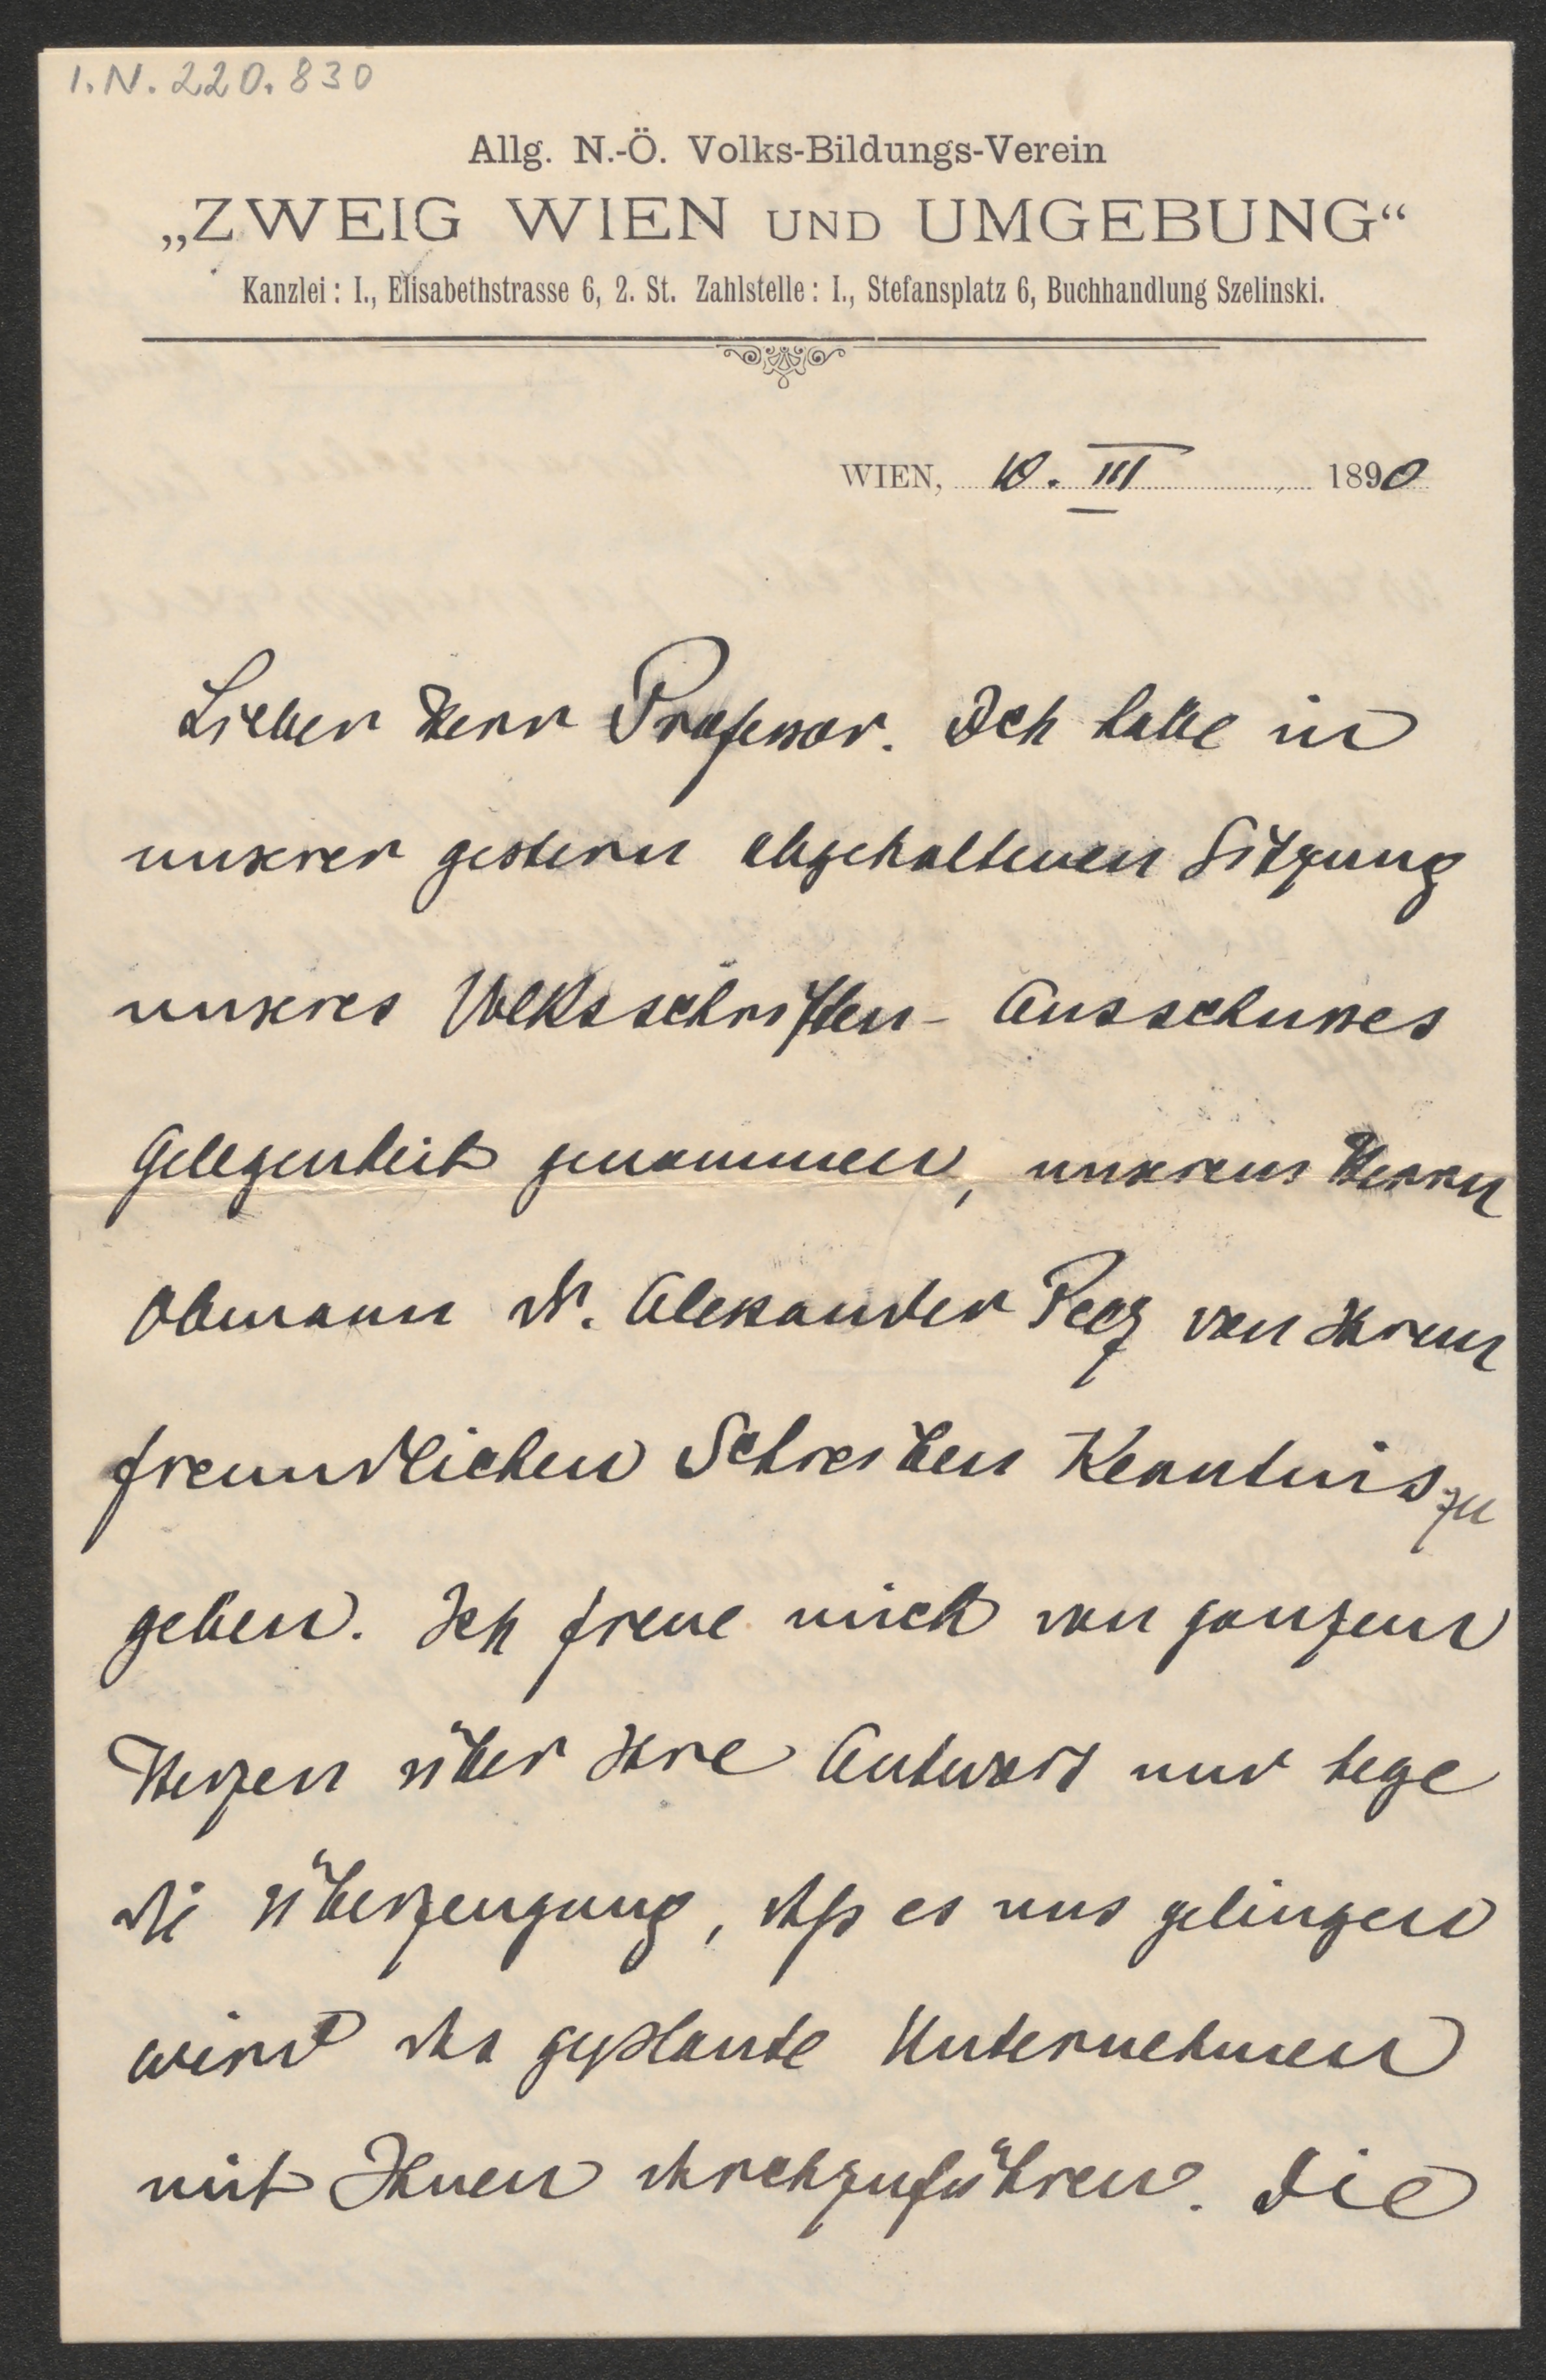 I.N. 220.830
Allg. N.-Ö. Volks-Bildungs-Verein
„ZWEIG WIEN UND UMGEBUNG“
Kanzlei: I., Elisabethstrasse 6, 2. St. Zahlstelle: I., Stefansplatz 6, Buchhandlung Szelinski.
WIEN, 10. III 1890
Lieber Herr Professor. Ich habe in
unserer gestern abgehaltenen Sitzung
unseres Volksschriften-Ausschusses
Gelegenheit genommen, unserem Herrn
Obmann Dr. Alexander Peez von Ihrem
freundlichen Schreiben Kenntnis zu
geben. Ich freue mich von ganzem
Herzen über Ihre Antwort und hege
die Überzeugung, daß es uns gelingen
wird das geplante Unternehmen
mit Ihnen durchzuführen. Die